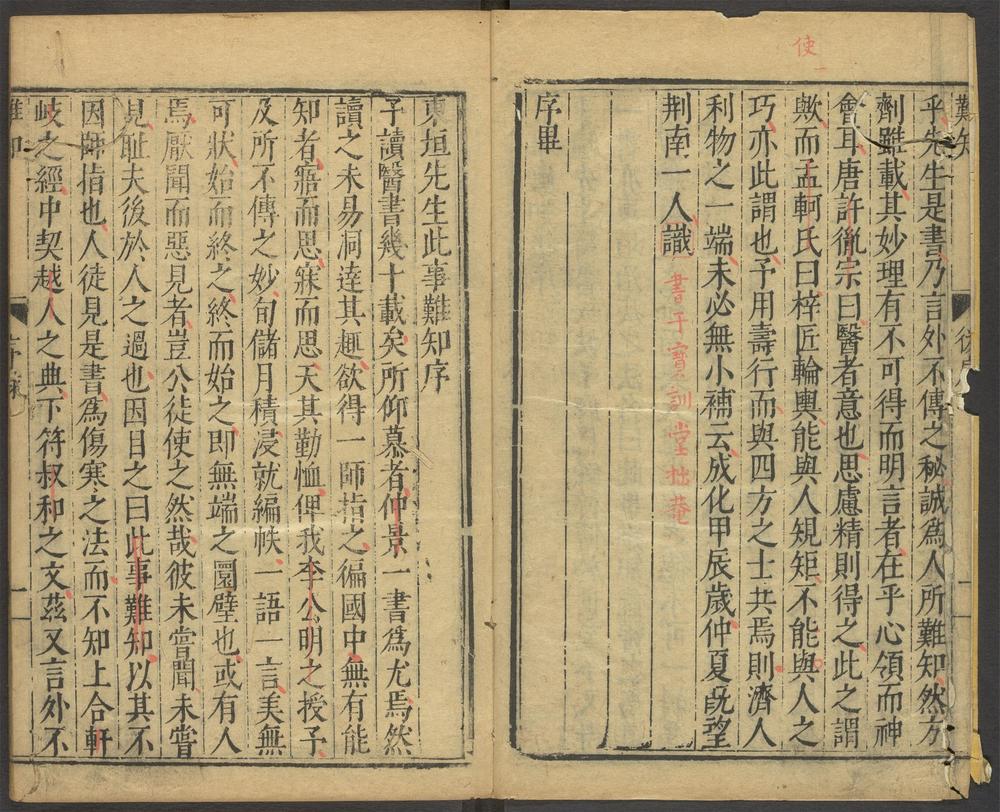 使
難知
乎先生是書乃言外不傳之秘誠為人所難知然方
劑雖載其妙理有不可得而明言者在乎心領而神
會耳唐許胤宗曰醫者意也思慮精則得之此之謂
歟而孟軻氏曰梓匠輪輿能與人規矩不能與人之
巧亦此謂也予用壽行而與四方之士共焉則濟人
利物之一端未必無小補云成化甲辰歲仲夏既望
荆南一人識
書于寶訓堂拙菴
序畢
東垣先生此事難知序
予讀醫書幾十載矣所仰慕者仲景一書為尤焉然
讀之未易洞達其趣欲得一師指之徧國中無有能
知者寤而思寐而思天其勤恤俾我李公明之授予
及所不傳之妙旬儲月積浸就編帙一語一言美無
可狀始而終之終而始之即無端之圜璧也或有人
焉厭聞而惡見者豈公徒使之然哉彼未嘗聞未嘗
見耻夫後於人之過也因目之曰此事難知以其不
因師指也人徒見是書為傷寒之法而不知上合軒
岐之經中契越人之典下符叔和之文茲又言外不
難知